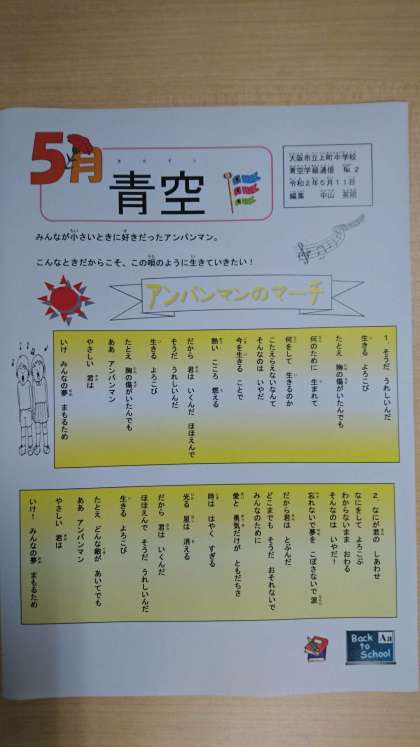 5月
青空
大阪市立上町中学校
青空学級通信 No.2
令和2年5月11日
編集 中山
みんなが小さいときに好きだったアンパンマン。
こんなときだからこそ、この唄のように生きていきたい！
アンパンマンのマーチ
1. そうだ うれしいんだ
生きる よろこび
たとえ 胸の傷がいたんでも
何のために 生まれて
何をして 生きるのか
こたえらえないなんて
そんなのは いやだ
今を生きる ことで
熱い こころ 燃える
だから 君は いくんだ ほほえんで
そうだ うれしいんだ
生きる よろこび
たとえ 胸の傷がいたんでも
ああ アンパンマン
やさしい 君は
いけ みんなの夢 まもるため
2. なにが君の しあわせ
なにをして よろこぶ
わからないまま おわる
そんなのは いやだ！
忘れないで夢を こぼさないで 涙
だから君は とぶんだ
どこまでも
そうだ おそれないで
みんなのために
愛と 勇気だけが ともだちさ
時は はやく すぎる
光る 星は 消える
だから 君は いくんだ
ほほえんで そうだ うれしいんだ
生きる よろこび
たとえ どんな敵が あいてでも
ああ アンパンマン
やさしい 君は
いけ！ みんなの夢 まもるため
Back to School
Aa